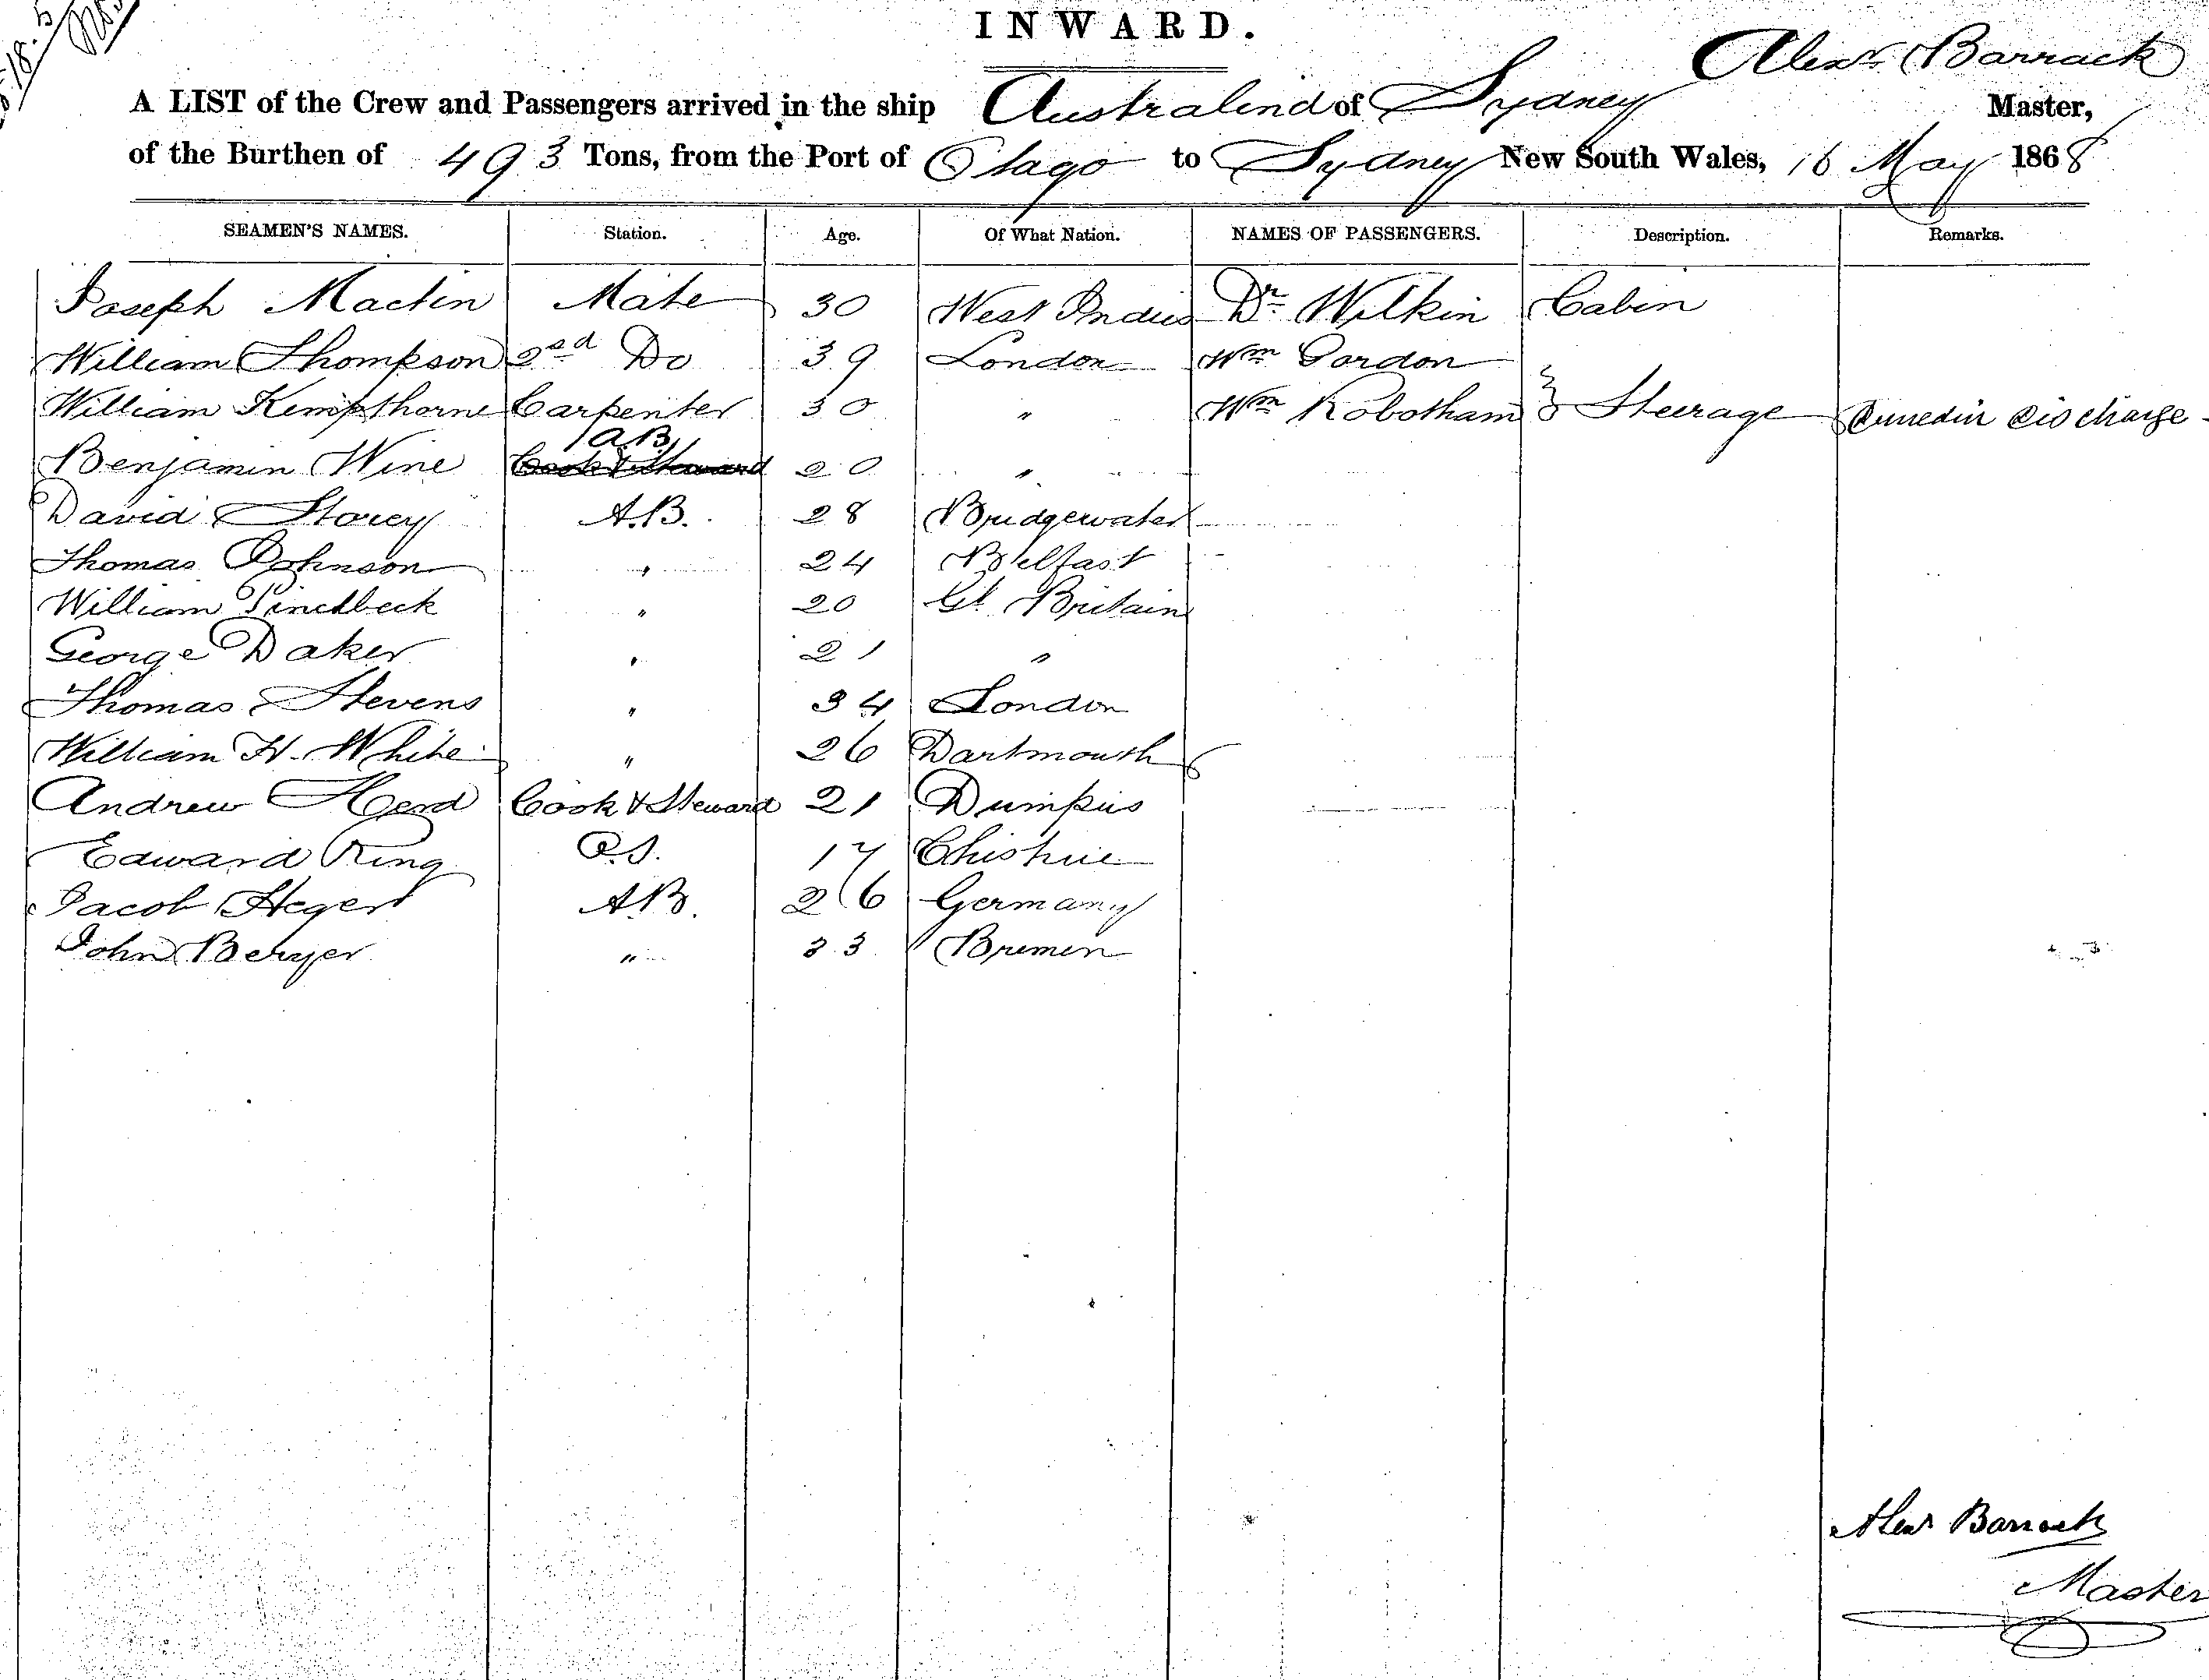 INWARD.
Alexr. Barrack
A LIST of the Crew and Passengers arrived in the ship Australind of Sydney Master,
of the Burthen of 493 Tons, from the Port of Otago to Sydney New South Wales, 16 May 1868
SEAMEN'S NAMES. Station. Age. Of What Nation. NAMES OF PASSENGERS. Description. Remarks.
Joseph Mactin Mate 30 West Indies Dr. Wilkin Cabin
William Thompson 2nd Do 39 London Wm Gordon
William Kempthorne Carpenter 30 " Wm Robotham } Steerage Dunedin discharge
A.B.
Benjamin Wine Cook & Steward 20 "
David Storey A.B. 28 Bridgewater
Thomas Johnson " 24 Belfast
William Pinchbeck " 20 Gt. Britain
George Daker " 21 "
Thomas Stevens " 34 London
William H. White " 26 Dartmouth
Andrew Herd Cook & Steward 21 Dumfries
Edward King O.S. 17 Cheshire
Jacob Hegert A.B. 26 Germany
John Beryer " 33 Bremen
Alexr Barrack
Master